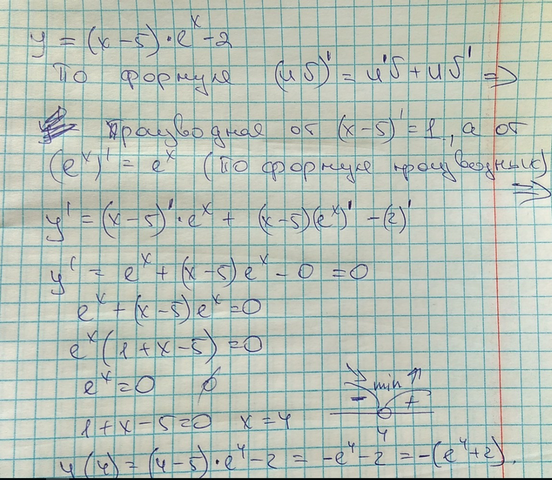 y = (x-5)·e^x-2
По формуле (uv)' = u'v + uv' ⇒
Производная от (x-5)'=1, а от
(e^x)' = e^x (по формуле производных) ⇒
y' = (x-5)'·e^x + (x-5)(e^x)' - (2)'
y' = e^x + (x-5)e^x - 0 = 0
e^x + (x-5)e^x = 0
e^x(1+x-5) = 0
e^x = 0 ∅
↘ min ↗
- +
1+x-5=0 x=4
4
y(4) = (4-5)·e^4-2 = -e^4-2 = -(e^4+2).